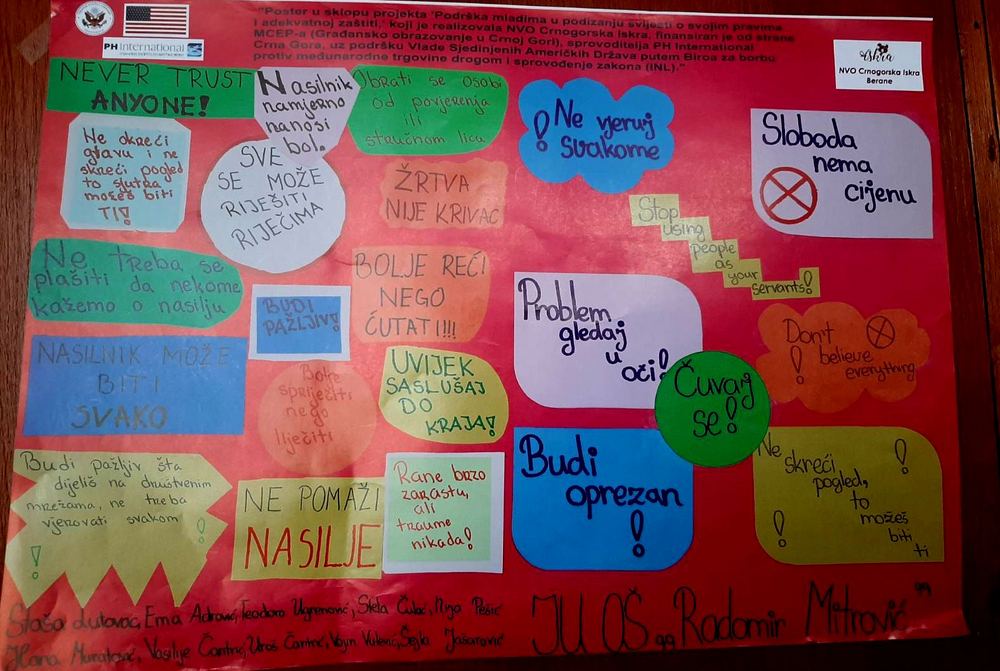 "Poster u sklopu projekta 'Podrška mladima u podizanju svijesti o svojim pravima
i adekvatnoj zaštiti,' koji je realizovala NVO Crnogorska Iskra, finansiran je od strane
MCEP-a (Građansko obrazovanje u Crnoj Gori), sproviditelja PH International
Crna Gora, uz podršku Vlade Sjedinjenih Američkih Država putem Biroa za borbu
protiv međunarodne trgovine drogom i sprovođenje zakona (INL)."
PH International
Iskra
NVO Crnogorska Iskra
Berane
NEVER TRUST
ANYONE!
Nasilnik
namjerno
nanosi
bol.
Obrati se osobi
od povjerenja
ili
stručnom licu
Ne vjeruj
svakome
!
Sloboda
nema
cijenu
Ne okreći
glavu i ne
skreći pogled
to sjutra
možeš biti
TI!
SVE
SE MOŽE
RIJEŠITI
RIJEČIMA
ŽRTVA
NIJE KRIVAC
Stop
using
people
as
your
servants!
Ne treba se
plašiti da nekome
kažemo o nasilju
BUDI
PAŽLJIV!
BOLJE REĆI
NEGO
ĆUTATI!!!
Problem
gledaj
u
oči!
Don't
believe
everything
!
NASILNIK MOŽE
BITI
SVAKO
Bolje
spriječiti
nego
liječiti
UVIJEK
SASLUŠAJ
DO
KRAJA!
Čuvaj
se!
Budi pažljiv šta
dijeliš na društvenim
mrežama, ne treba
vjerovati svakom
!
!
NE POMAŽI
NASILJE
Rane brzo
zarastu,
ali
traume
nikada!
Budi
oprezan
!
Ne
skreći
pogled,
to
možeš
biti
ti
!
!
Staša Lutovac, Ema Adrović, Teodora Ugrenović, Stela Čulić, Nina Pešić
Hana Muratović, Vasilije Čantrić, Uroš Čantrić, Vojin Vulević, Šejla Jašarović
JU OŠ „Radomir Mitrović"